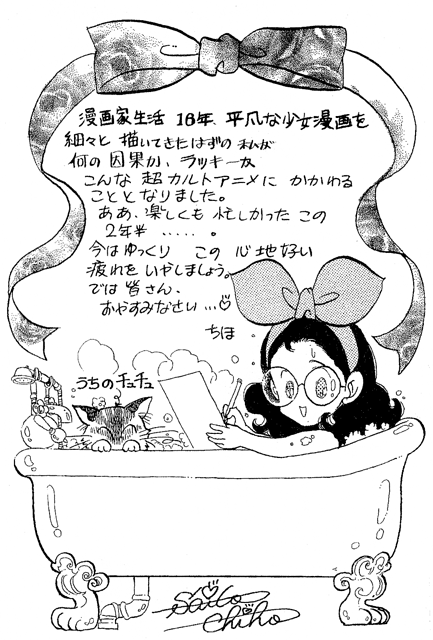 漫画家生活 16年、平凡な少女漫画を
細々と 描いてきたはずの 私が
何の 因果か、ラッキーか
こんな 超カルトアニメに かかわる
こととなりました。
ああ、楽しくも 忙しかった この
2年半 ‥‥‥。
今はゆっくり この 心地好い
疲れを いやしましょう。
では 皆さん、
おやすみなさい…♡
ちほ
うちのチュチュ
Saito
Chiho